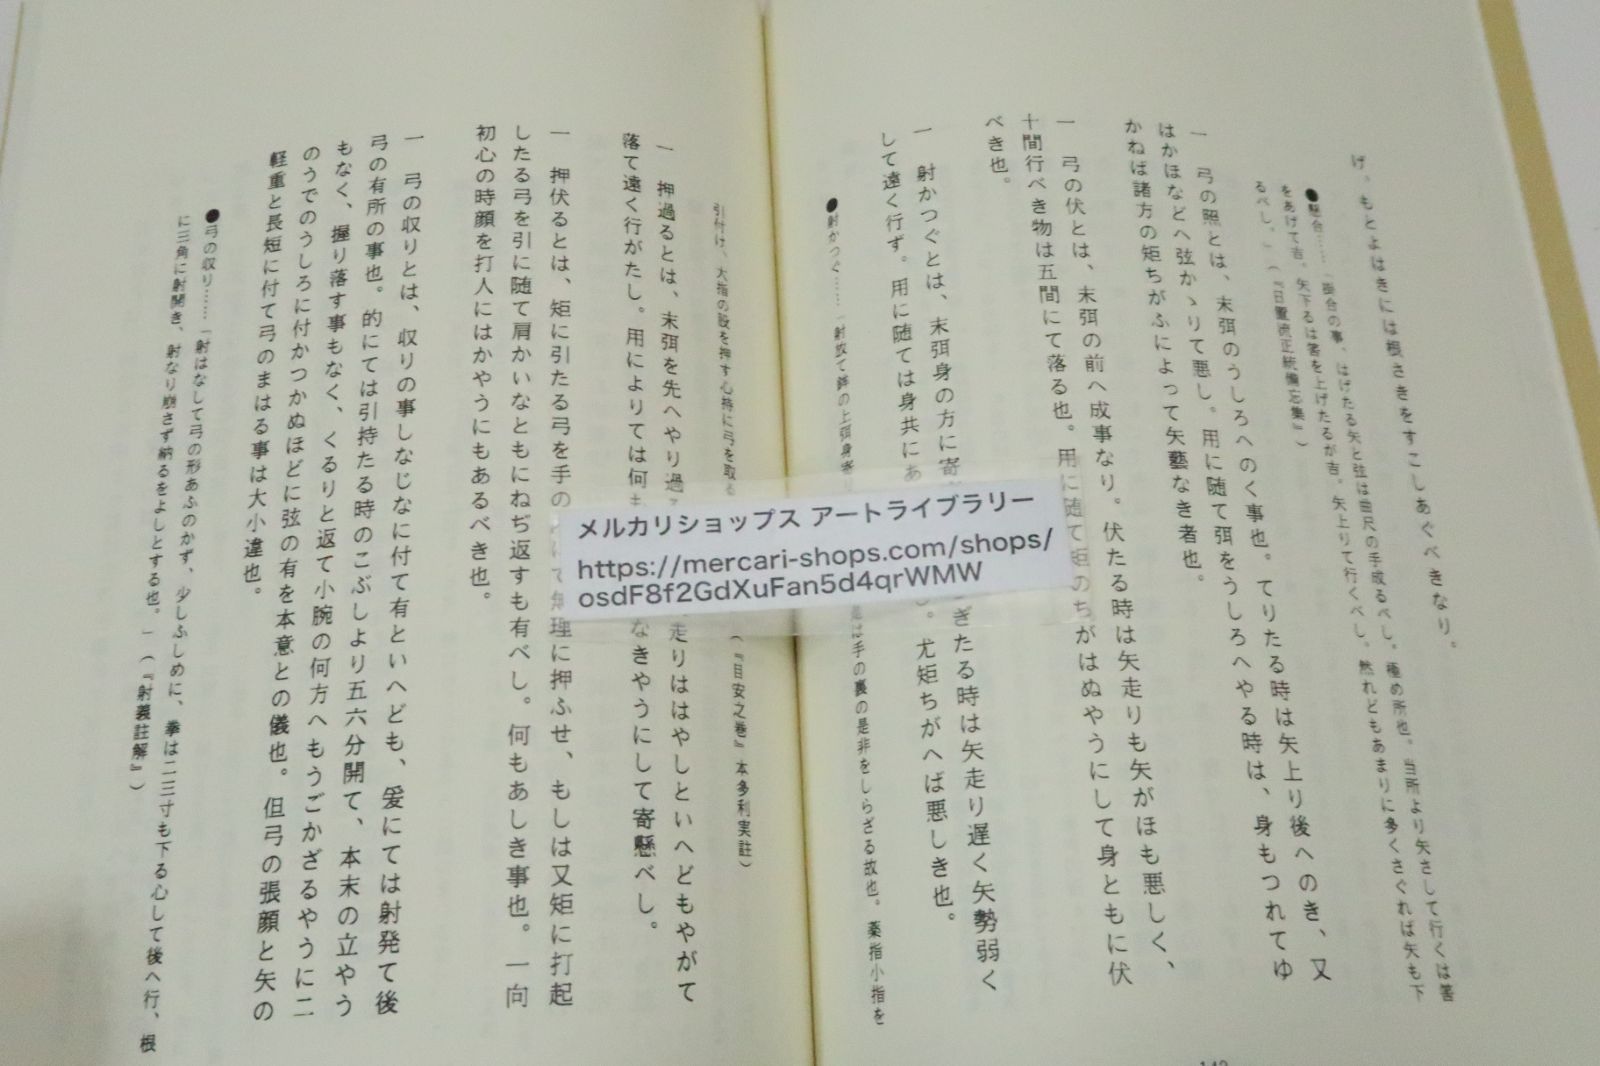 げ。もとよはきには根さきをすこしあぐべきなり。
●懸合……「懸合の事、はげたる矢と弦は曲尺の手成るべし。極め所也。当所より矢さして行くは筈
をあげて吉。矢下るは筈を上げたるが吉。矢上りて行くべし。然れどもあまりに多くさぐれば矢も下
るべし。」(『日置流正統備忘集』)
一　弓の照とは、末弭のうしろへのく事也。てりたる時は矢上り後へのき、又
はかほなどへ弦かゝりて悪し。用に随て弭をうしろへやる時は、身もつれてゆ
かねば諸方の矩ちがふによって矢藝なき者也。
一　弓の伏とは、末弭の前へ成事なり。伏たる時は矢走りも矢がほも悪しく、
十間行べき物は五間にて落る也。用に随て矩のちがはぬやうにして身ともに伏
べき也。
一　射かつぐとは、末弭身の方に寄 ぎたる時は矢走り遅く矢勢弱く
して遠く行ず。用に随ては身共にあ 。尤矩ちがへば悪しき也。
●射かつぐ……「射放て鉾の上弭身寄 是は手の裏の是非をしらざる故也。薬指小指を
引付け、大指の股を押す心持に弓を取る (『目安之巻』本多利実註)
一　押過るとは、末弭を先へやり過 走りははやしといへどもやがて
落て遠く行がたし。用によりては何も なきやうにして寄懸べし。
一　押伏るとは、矩に引たる弓を手の て無理に押ふせ、もしは又矩に打起
したる弓を引に随て肩かいなともにねぢ返すも有べし。何もあしき事也。一向
初心の時顔を打人にはかやうにもあるべき也。
一　弓の収りとは、収りの事しなじなに付て有といへども、爰にては射発て後
弓の有所の事也。的にては引持たる時のこぶしより五六分開て、本末の立やう
もなく、握り落す事もなく、くるりと返て小腕の何方へもうごかざるやうに二
のうでのうしろに付かつかぬほどに弦の有を本意との儀也。但弓の張顔と矢の
軽重と長短に付て弓のまはる事は大小違也。
●弓の収り……「射はなして弓の形あふのかず、少しふしめに、拳は二三寸も下る心して後へ行、根
に三角に射開き、射なり崩さず納るをよしとする也。」(『射義註解』)
メルカリショップス アートライブラリー
https://mercari-shops.com/shops/
osdF8f2GdXuFan5d4qrWMW